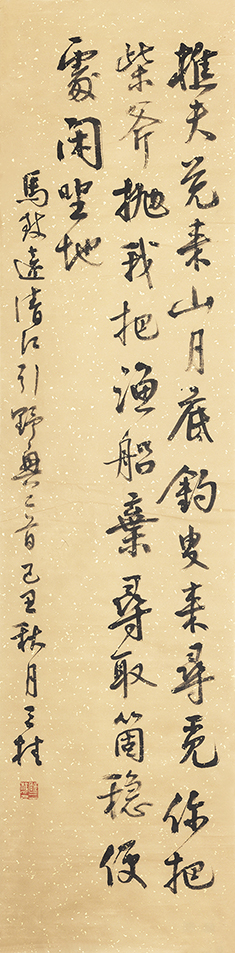 樵夫覺來山月底釣叟來尋覓你把
柴斧拋我把漁船棄尋取箇穩便
處閑坐地
馬致遠清江引野興首己丑秋月